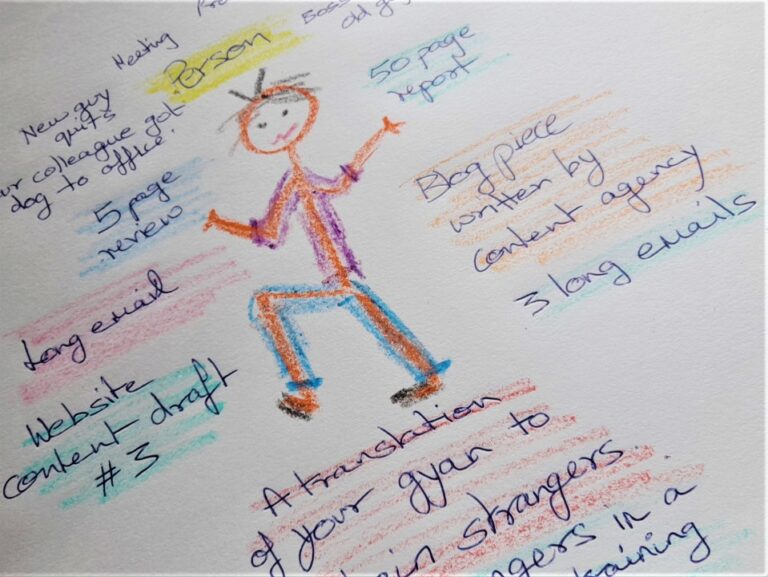 Meeting
Person
50 page
report
New guy
quits
ur colleague got
dog to office.
5 page
review
Blog piece
written by
content agency
3 long emails
Long email
Website
content draft
#3
A translation
of your gyan to
strangers
in a